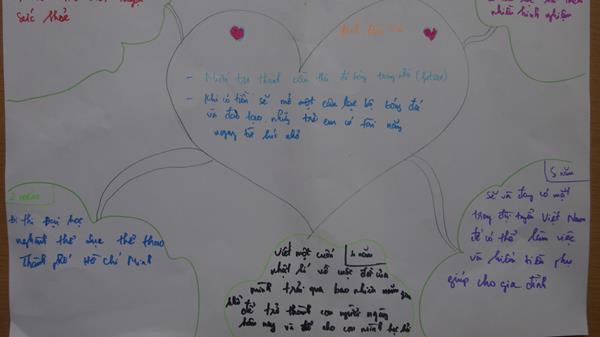 sức khỏe
nhiều kinh nghiệm
- Muốn trở thành cầu thủ đá bóng trong nhà (futsal)
- Khi có tiền sẽ mở một câu lạc bộ bóng đá
và đào tạo những trẻ em có tài năng
ngay từ lúc nhỏ
Đi thi Đại học
nghành thể dục thể thao
Thành phố Hồ Chí Minh
5 năm
sẽ và đang có mặt
trong đội tuyển Việt Nam
để có thể làm việc
và kiếm tiền phụ
giúp cho gia đình
Viết một cuốn
nhật kí về cuộc đời của
mình trải qua bao nhiêu năm gian
khổ để trở thành con người ngày
hôm nay và để cho con mình học hỏi